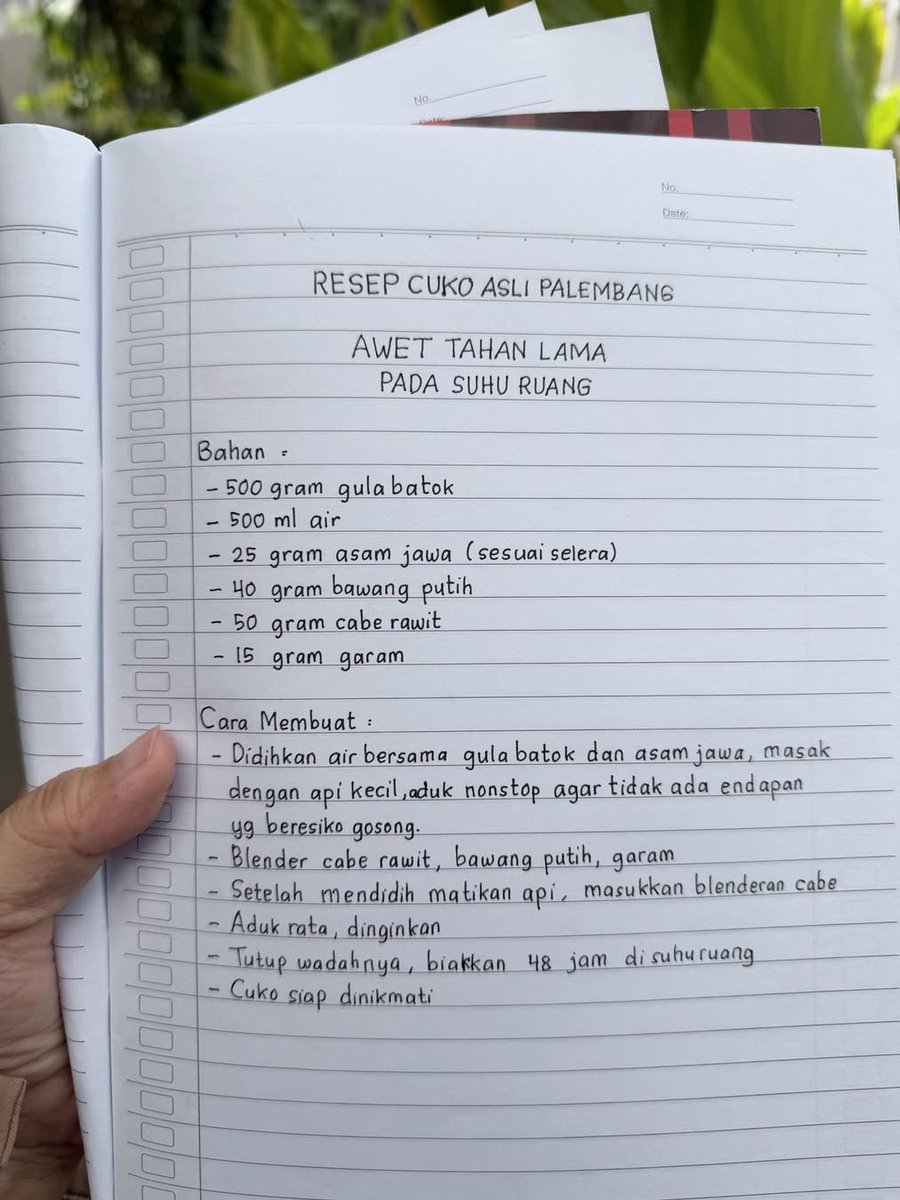 No.
Date:
No.
Date:
RESEP CUKO ASLI PALEMBANG
AWET TAHAN LAMA
PADA SUHU RUANG
Bahan :
- 500 gram gula batok
- 500 ml air
- 25 gram asam jawa (sesuai selera)
- 40 gram bawang putih
- 50 gram cabe rawit
- 15 gram garam
Cara Membuat :
- Didihkan air bersama gula batok dan asam jawa, masak
dengan api kecil, aduk nonstop agar tidak ada endapan
yg beresiko gosong.
- Blender cabe rawit, bawang putih, garam
- Setelah mendidih matikan api, masukkan blenderan cabe
- Aduk rata, dinginkan
- Tutup wadahnya, biakkan 48 jam di suhu ruang
- Cuko siap dinikmati